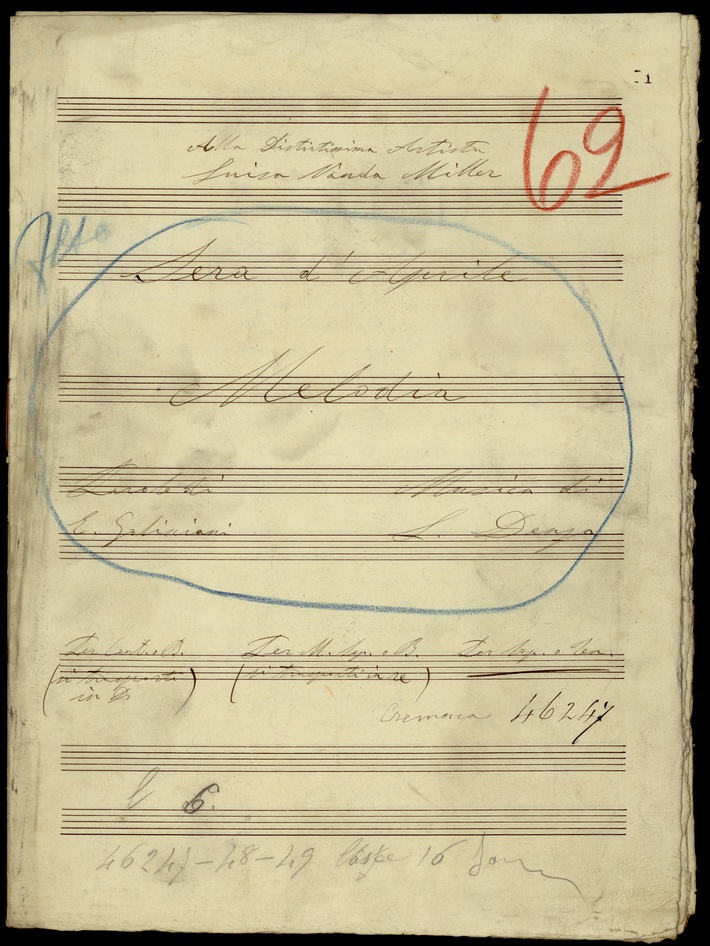 1
62
Alla Distintissima Artista
Luisa Vanda Miller
Alto
Sera d'Aprile
Melodia
Parole di Musica di
E. Golisciani L. Denza
Per Cont. o B. Per M. Sop. o B. Per Sop. o Ten.
(si trasporti (si trasporti in re)
in Do)
Cremona 46247
L 6.
46247-48-49 16